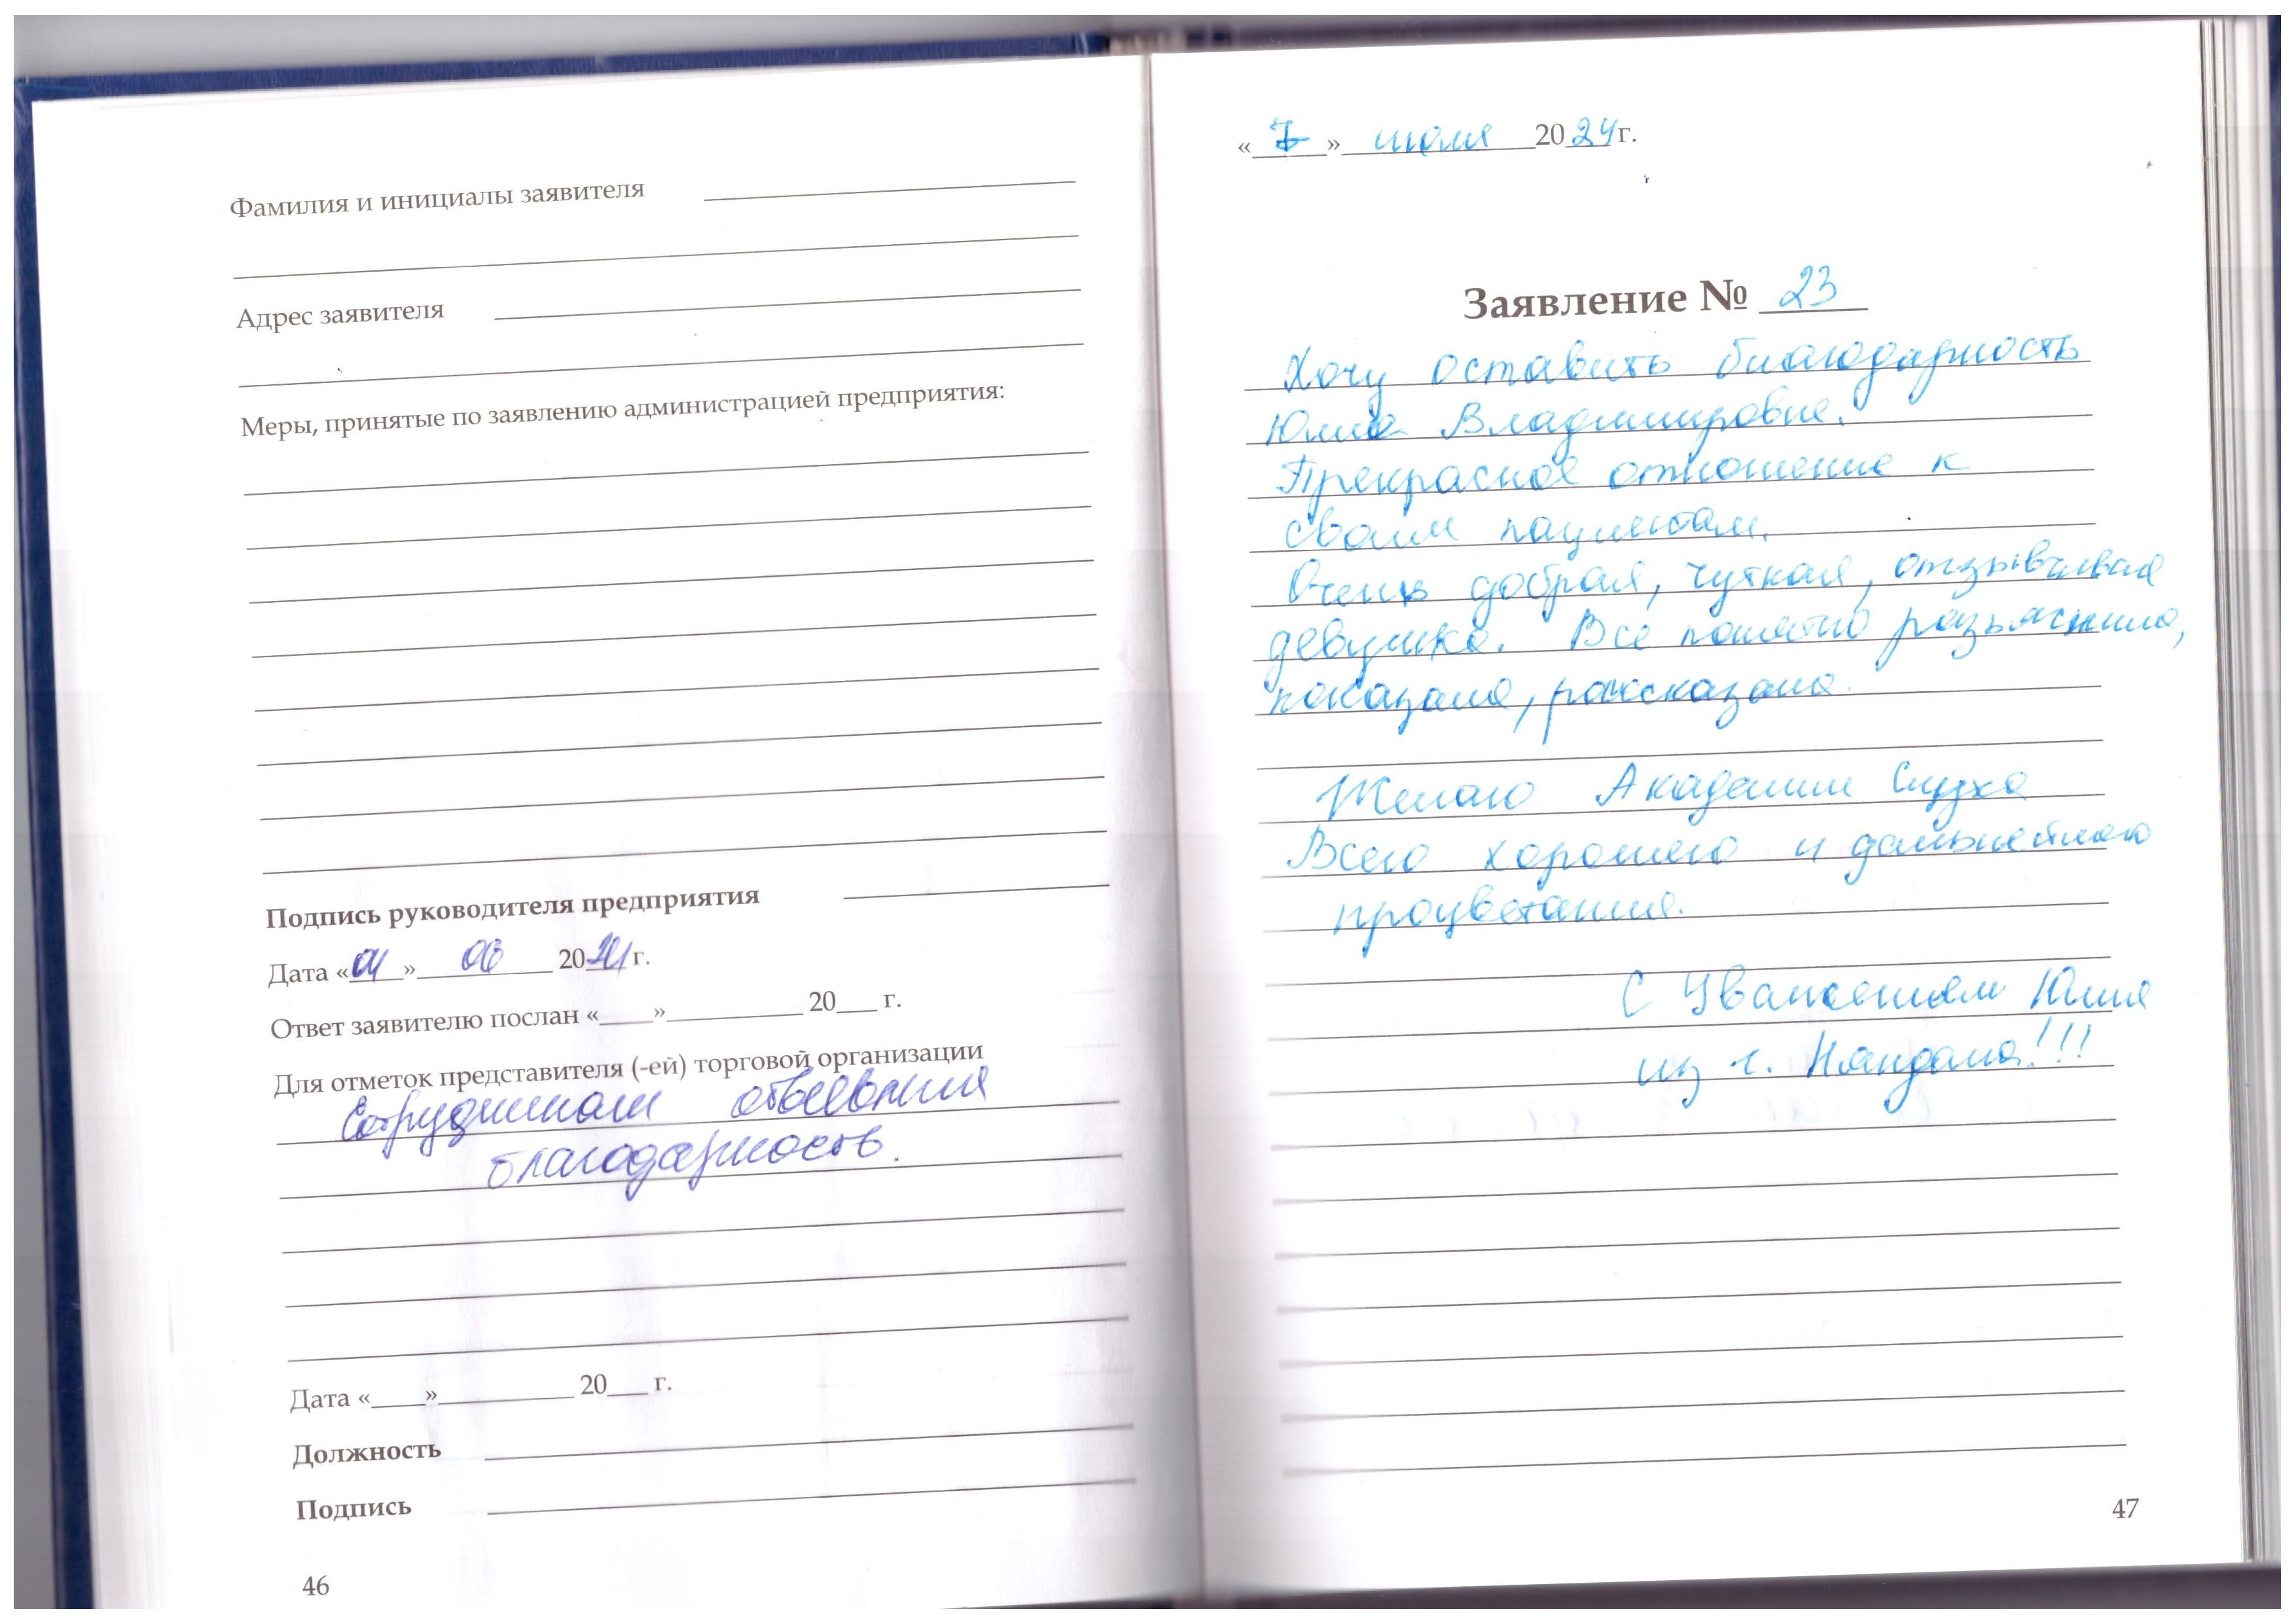 Фамилия и инициалы заявителя
Адрес заявителя
Меры, принятые по заявлению администрацией предприятия:
Подпись руководителя предприятия
Дата «01» 06 20 г.
Ответ заявителю послан «____»__________ 20___ г.
Для отметок представителя (-ей) торговой организации
Сотрудникам объявлена
благодарность.
Дата «____»__________ 20___ г.
Должность
Подпись
46
« » июля 2024 г.
Заявление № 23
Хочу оставить благодарность
Юлие Владимировне.
Прекрасное отношение к
своим пациентам.
Очень добрая, чуткая, отзывчивая
девушка. Все понятно разъяснила,
показала, рассказала.
Желаю Академии Слуха
Всего хорошего и дальнейшего
процветания.
С Уважением Юлия
из г. Няндома!!!
47